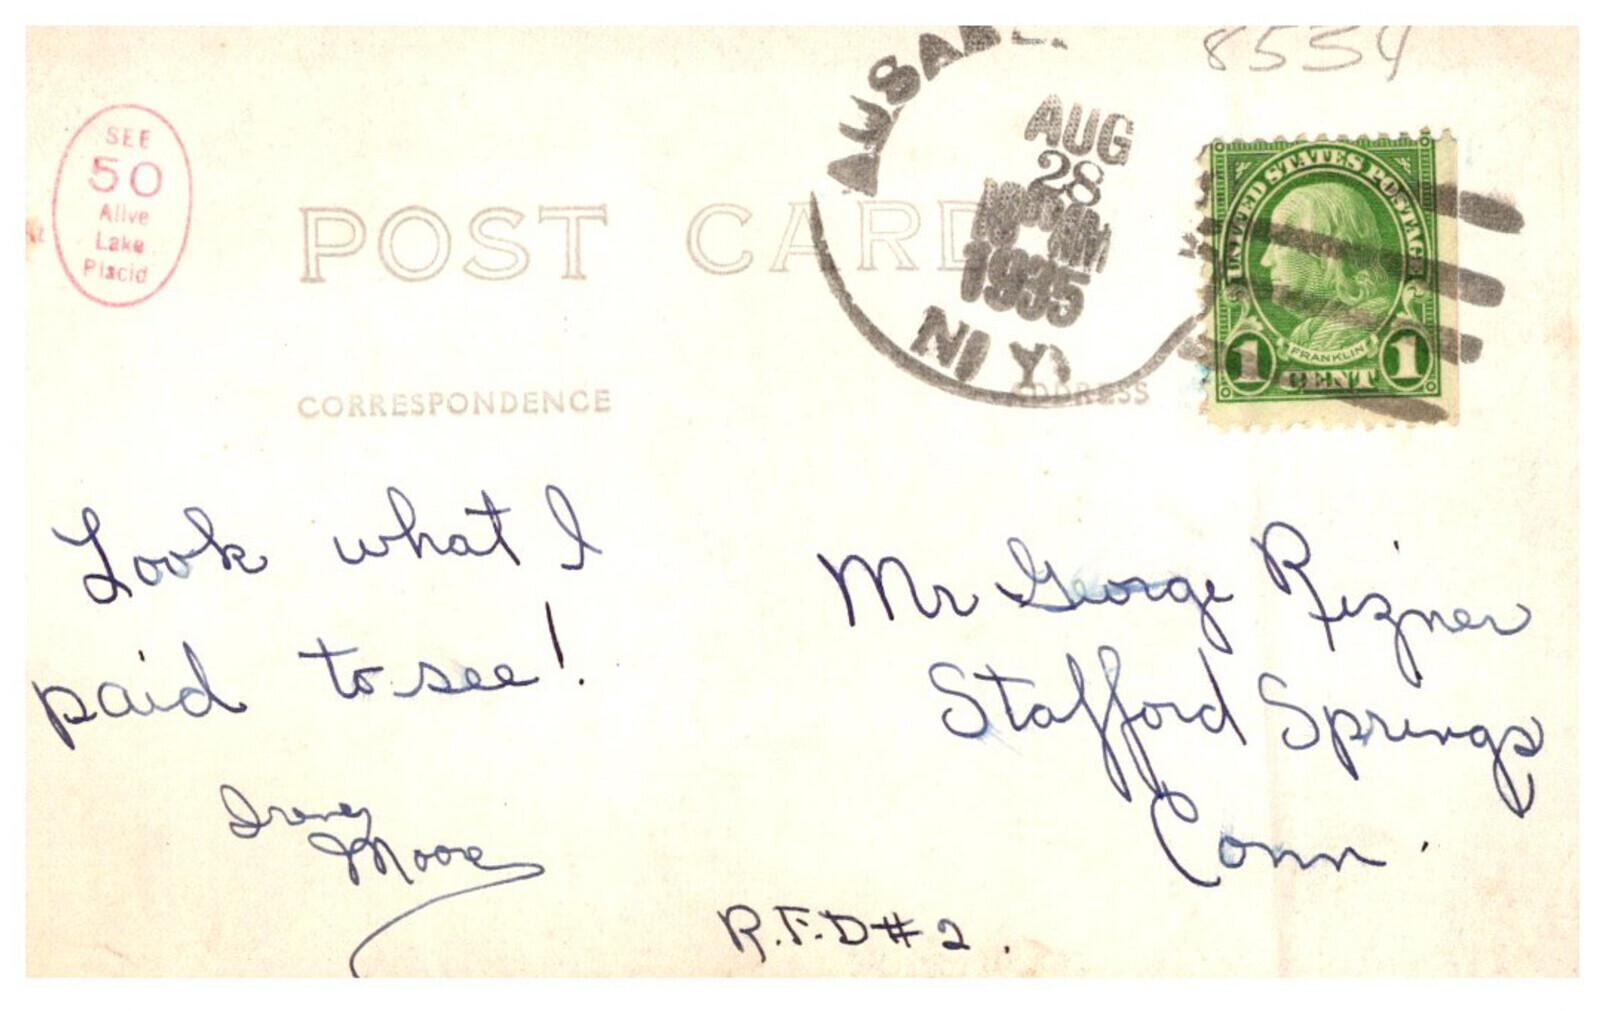 8554
SEE
50
Alive
Lake
Placid
POST CARD
AUSABLE
AUG
28
AM
1935
N. Y.
UNITED STATES POSTAGE
FRANKLIN
1 CENT 1
CORRESPONDENCE
ADDRESS
Look what I
paid to see!
Irene
Moore
Mr George Rizner
Stafford Springs
Conn.
R.F.D # 2.